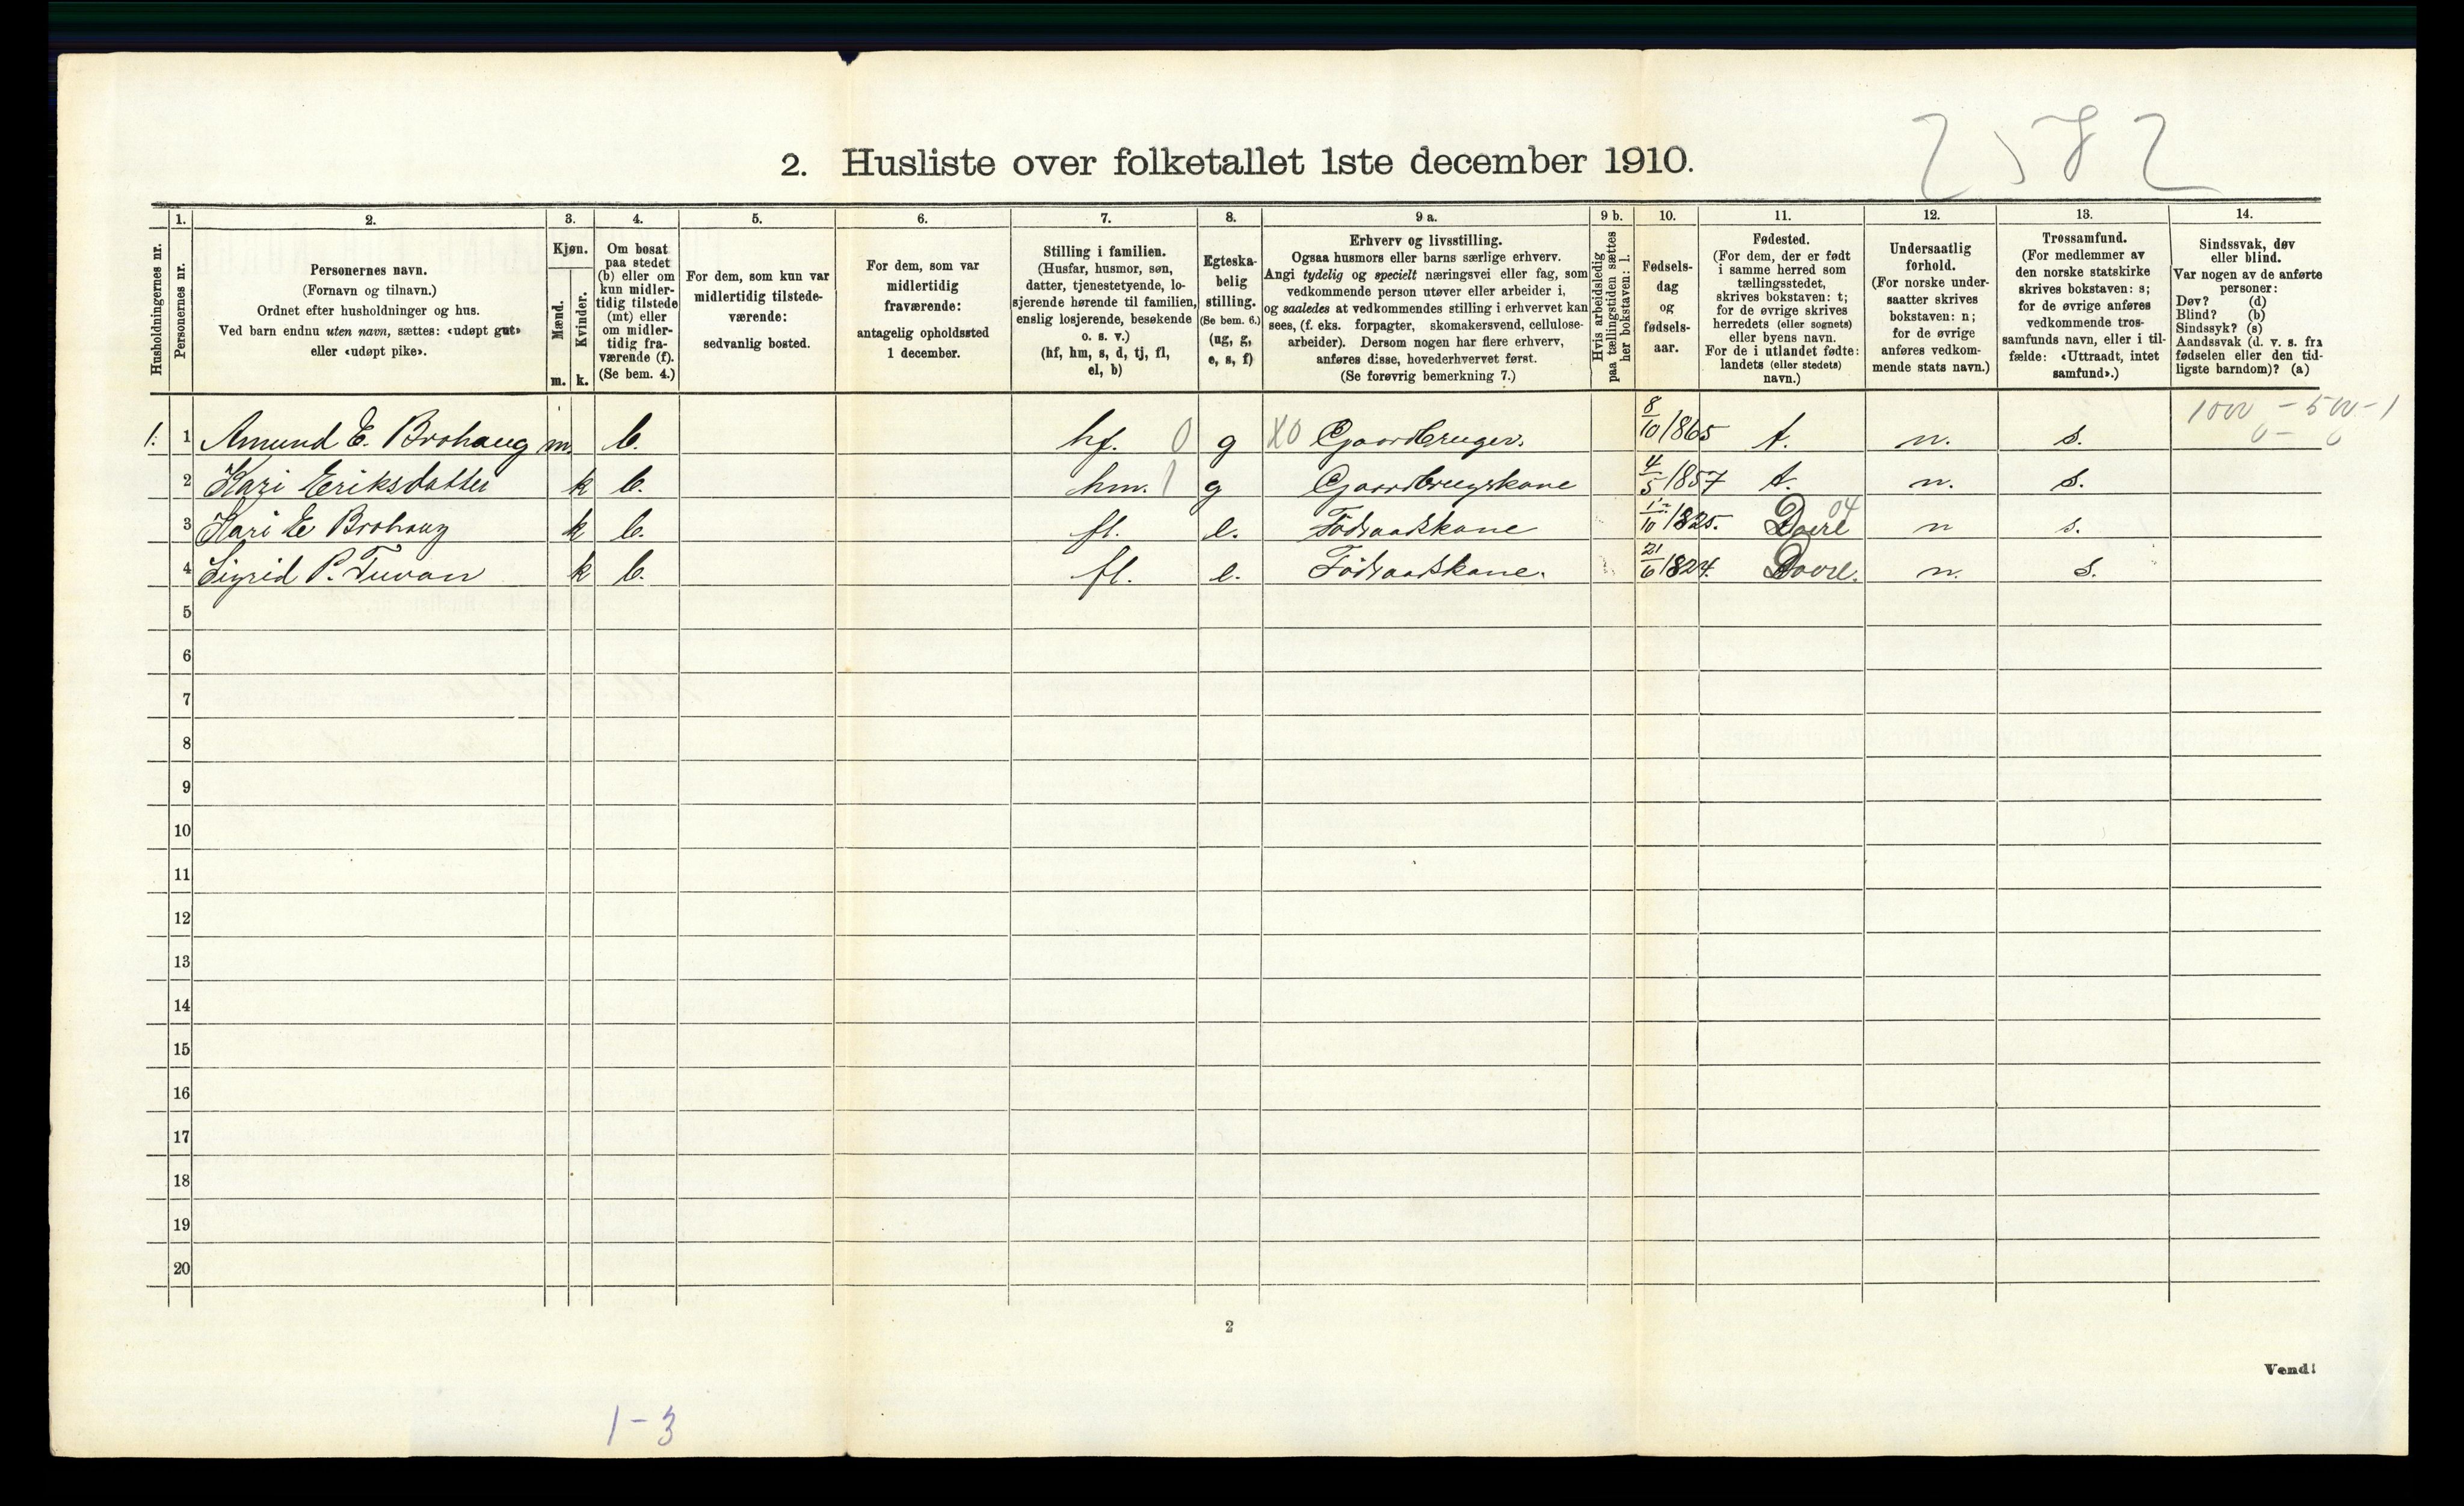 2582
2. Husliste over folketallet 1ste december 1910.
Husholdningernes nr.
1.
Personernes nr.
2.
Personernes navn.
(Fornavn og tilnavn.)
Ordnet efter husholdninger og hus.
Ved barn endnu uten navn, sættes: «udøpt gut»
eller «udøpt pike».
3.
Kjøn.
Mænd.
Kvinder.
m. k.
4.
Om bosat
paa stedet
(b) eller om
kun midler-
tidig tilstede
(mt) eller
om midler-
tidig fra-
værende (f).
(Se bem. 4.)
5.
For dem, som kun var
midlertidig tilstede-
værende:
sedvanlig bosted.
6.
For dem, som var
midlertidig
fraværende:
antagelig opholdssted
1 december.
7.
Stilling i familien.
(Husfar, husmor, søn,
datter, tjenestetyende, lo-
sjerende hørende til familien,
enslig losjerende, besøkende
o. s. v.)
(hf, hm, s, d, tj, fl,
el, b)
8.
Egteska-
belig
stilling.
(Se bem. 6.)
(ug, g,
e, s, f)
9 a.
Erhverv og livsstilling.
Ogsaa husmors eller barns særlige erhverv.
Angi tydelig og specielt næringsvei eller fag, som
vedkommende person utøver eller arbeider i,
og saaledes at vedkommendes stilling i erhvervet kan
sees, (f. eks. forpagter, skomakersvend, cellulose-
arbeider). Dersom nogen har flere erhverv,
anføres disse, hovederhvervet først.
(Se forøvrig bemerkning 7.)
9 b.
Hvis arbeidsledig
paa tællingstiden sættes
her bokstaven: l.
10.
Fødsels-
dag
og
fødsels-
aar.
11.
Fødested.
(For dem, der er født
i samme herred som
tællingsstedet,
skrives bokstaven: t;
for de øvrige skrives
herredets (eller sognets)
eller byens navn.
For de i utlandet fødte:
landets (eller stedets)
navn.)
12.
Undersaatlig
forhold.
(For norske under-
saatter skrives
bokstaven: n;
for de øvrige
anføres vedkom-
mende stats navn.)
13.
Trossamfund.
(For medlemmer av
den norske statskirke
skrives bokstaven: s;
for de øvrige anføres
vedkommende tros-
samfunds navn, eller i til-
fælde: «Uttraadt, intet
samfund».)
14.
Sindssvak, døv
eller blind.
Var nogen av de anførte
personer:
Døv? (d)
Blind? (b)
Sindssyk? (s)
Aandssvak (d. v. s. fra
fødselen eller den tid-
ligste barndom)? (a)
1000 - 500 - 1
0 - 0
1. 1 Amund E. Brohaug m. b. hf. 0 g X0 Gaardbruger. 8/10 1865 t. n. s.
2 Kari Eriksdatter k b. hm. 1 g Gaardbrugskone 4/5 1857 t. n. s.
3 Kari E Brohaug k b. fl. e. Födraadskone 1/10 1825. Dovre 04 n s.
4 Sigrid P. Tuvan k b. fl. e. Födraadskone. 21/6 1824. Dovre. n. s.
5
6
7
8
9
10
11
12
13
14
15
16
17
18
19
20
2
Vend!
1-3